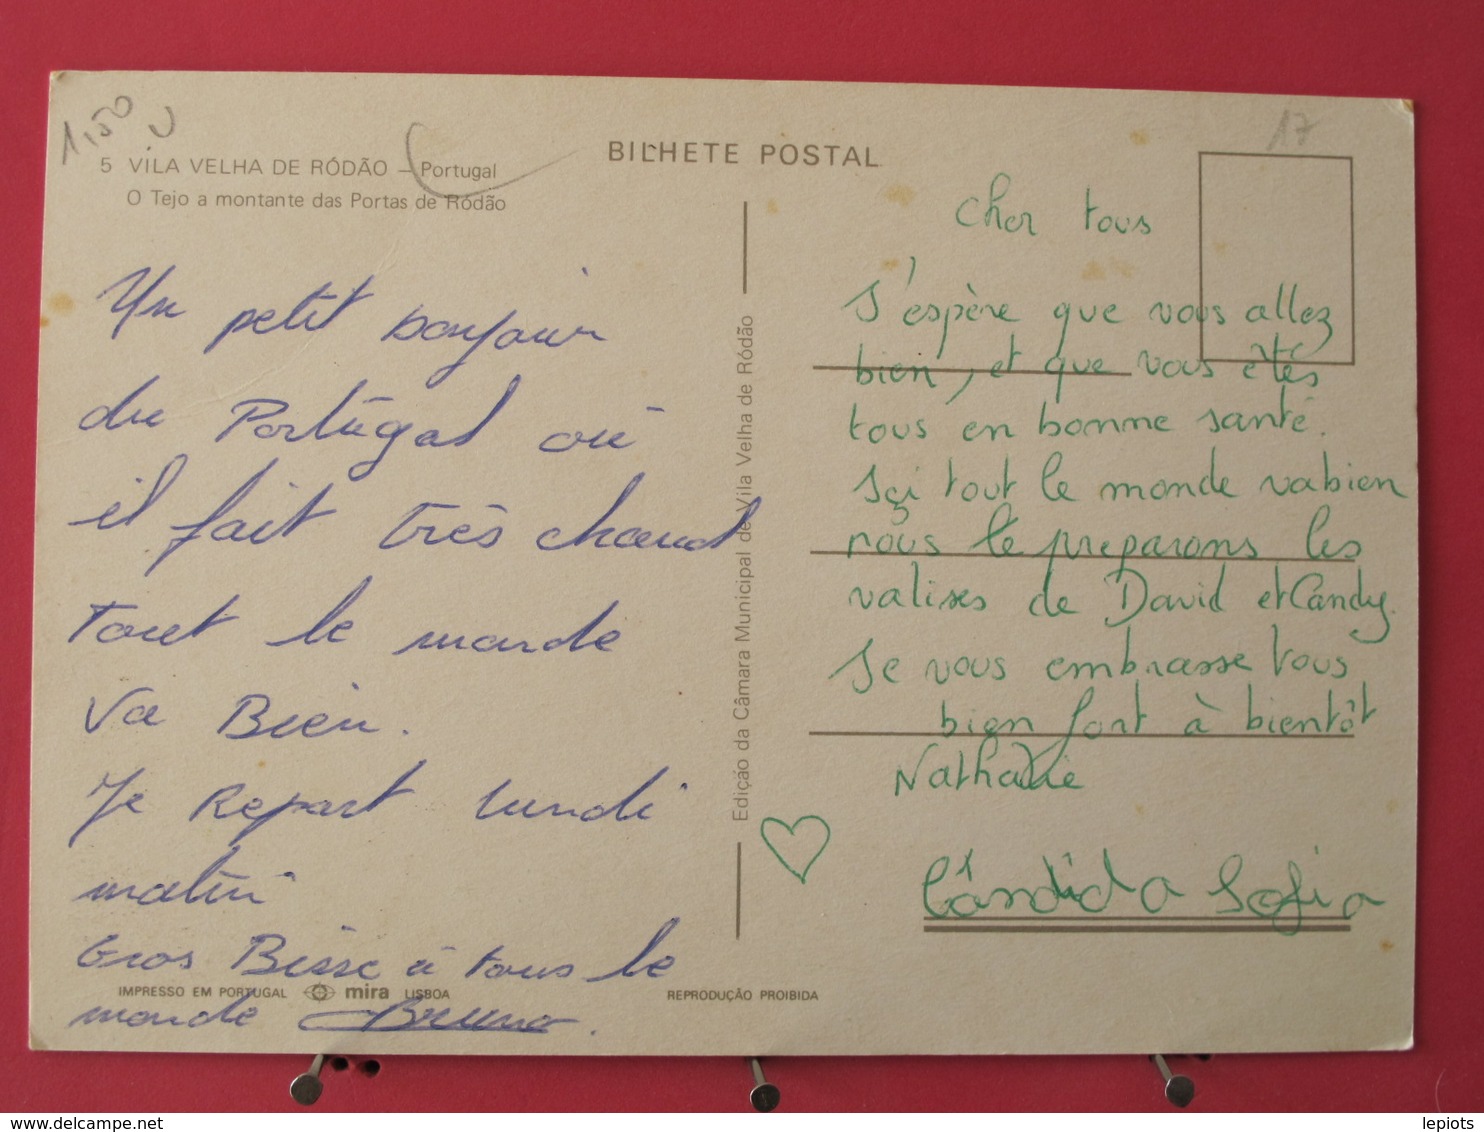 1,50 U
17
5 VILA VELHA DE RÓDÃO — Portugal
O Tejo a montante das Portas de Ródão
BILHETE POSTAL
Un petit bonjour
du Portugal où
il fait très chaud
Tout le monde
va Bien.
Je Repart lundi
matin
Gros Bisse à tous le
monde Bruno.
Edição da Câmara Municipal de Vila Velha de Ródão
Cher tous
J'espère que vous allez
bien, et que vous êtes
tous en bonne santé.
Içi tout le monde va bien
nous te preparons les
valises de David et Candy.
Je vous embrasse tous
bien fort à bientôt
Nathalie
Cândida Sofia
IMPRESSO EM PORTUGAL mira LISBOA
REPRODUÇÃO PROIBIDA
delcampe.net
lepiots